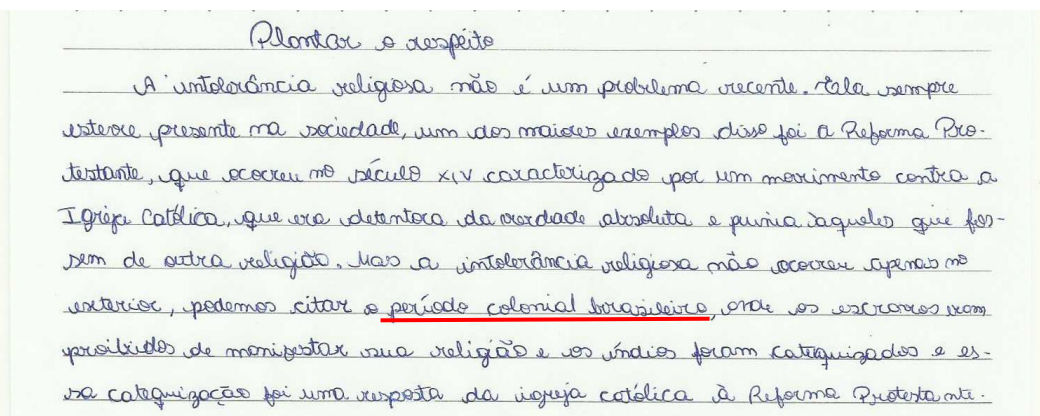 Plantar o respeito
A intolerância religiosa não é um problema recente. Ela sempre
esteve presente na sociedade, um dos maiores exemplos disso foi a Reforma Pro-
testante, que ocorreu no século XIV caracterizado por um movimento contra a
Igreja Católica, que era detentora da verdade absoluta e punia àqueles que fos-
sem de outra religião. Mas a intolerância religiosa não ocorreu apenas no
exterior, podemos citar o período colonial brasileiro, onde os escravos eram
proibidos de manifestar sua religião e os índios foram catequizados e es-
sa catequização foi uma resposta da igreja católica à Reforma Protestante.